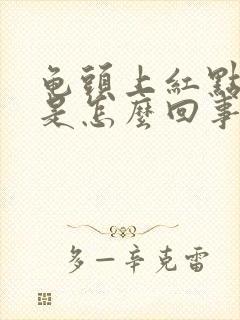 龟頭上紅點
是怎麼回事
多一辛克雷